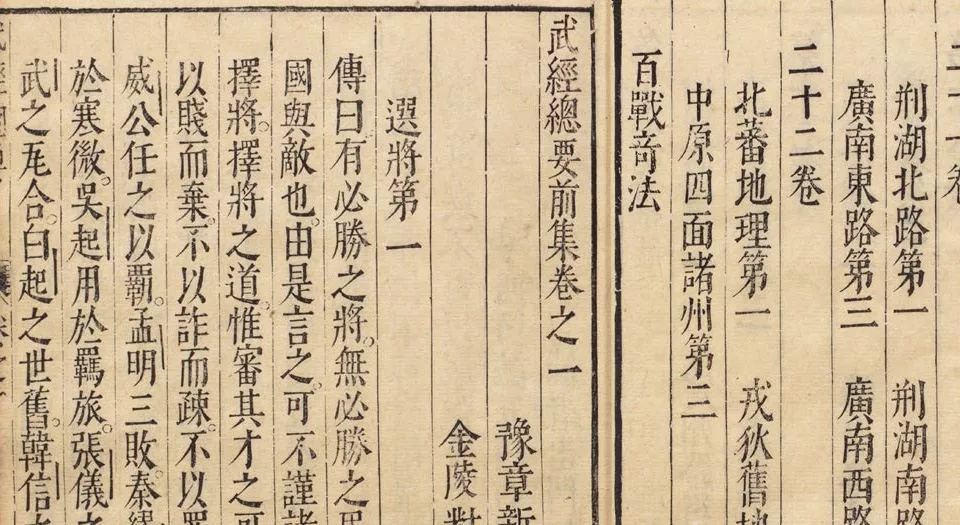 二十一卷
荆湖北路第一 荆湖南路
廣南東路第三 廣南西路
二十二卷
北蕃地理第一 戎狄舊地
中原四面諸州第三
百戰竒法
武經總要前集卷之一
豫章新
金陵對
選將第一
傳曰有必勝之將。無必勝之
國與敵也。由是言之。可不謹諸
擇將。擇將之道。惟審其才之可
以賤而棄。不以詐而疎。不以罪
威公任之以覇。孟明三敗。秦繆
於寒微。吳起用於羈旅。張儀
武之瓦合。白起之世舊。韓信